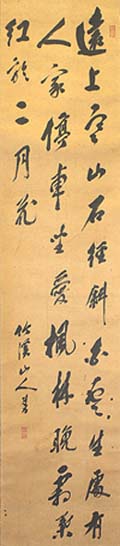 遠上寒山石徑斜白雲生處有
人家停車坐愛楓林晚霜葉
紅於二月花
竹溪山人書